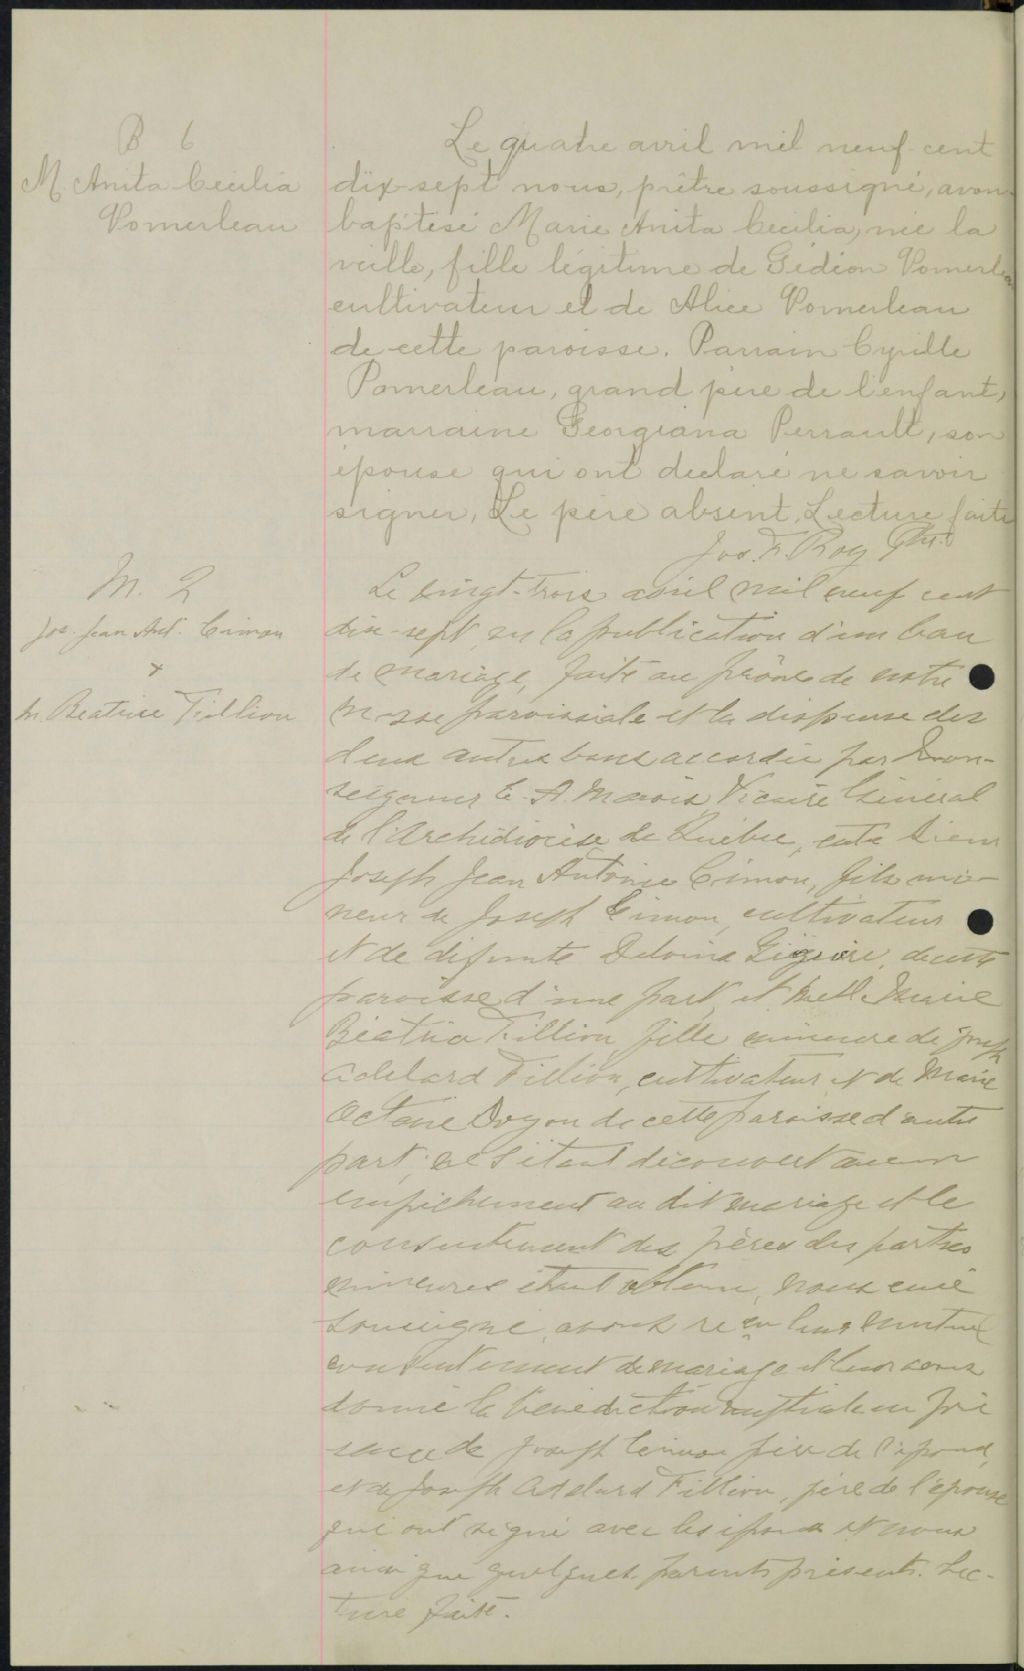 B 6
M. Anita Cecilia
Pomerleau
Le quatre avril mil neuf cent
dix-sept nous, prêtre soussigné, avons
baptisé Marie Anita Cecilia, née la
veille, fille légitime de Gédéon Pomerleau
cultivateur et de Alice Pomerleau
de cette paroisse. Parrain Cyrille
Pomerleau, grand père de l'enfant,
marraine Georgiana Perrault, son
épouse qui ont déclaré ne savoir
signer, Le père absent. Lecture faite
Jos. F. Roy Ptre.
M. 2
Jos. Jean Ant. Cimon
+
M. Beatrice Fillion
Le vingt-trois avril mil neuf cent
dix-sept, vu la publication d'un ban
de mariage, faite au prône de notre
messe paroissiale et la dispense des
deux autres bans accordée par Mon-
seigneur C. A. Marois, Vicaire Général
de l'Archidiocèse de Québec, entre Sieur
Joseph Jean Antoine Cimon, fils mi-
neur de Joseph Cimon, cultivateur
et de défunte Delvina Giguère, de cette
paroisse d'une part, et Melle Marie
Béatrice Fillion, fille mineure de Joseph
Adelard Fillion, cultivateur et de Marie
Octavie Doyon de cette paroisse d'autre
part; ne s'étant découvert aucun
empêchement au dit mariage et le
consentement des pères des parties
mineures étant obtenu, nous curé
soussigné, avons reçu leur mutuel
consentement de mariage et leur avons
donné la bénédiction nuptiale en pré
sence de Joseph Cimon père de l'époux,
et de Joseph Adelard Fillion, père de l'épouse
qui ont signé avec les époux et nous
ainsi que quelques parents présents. Lec-
ture faite.